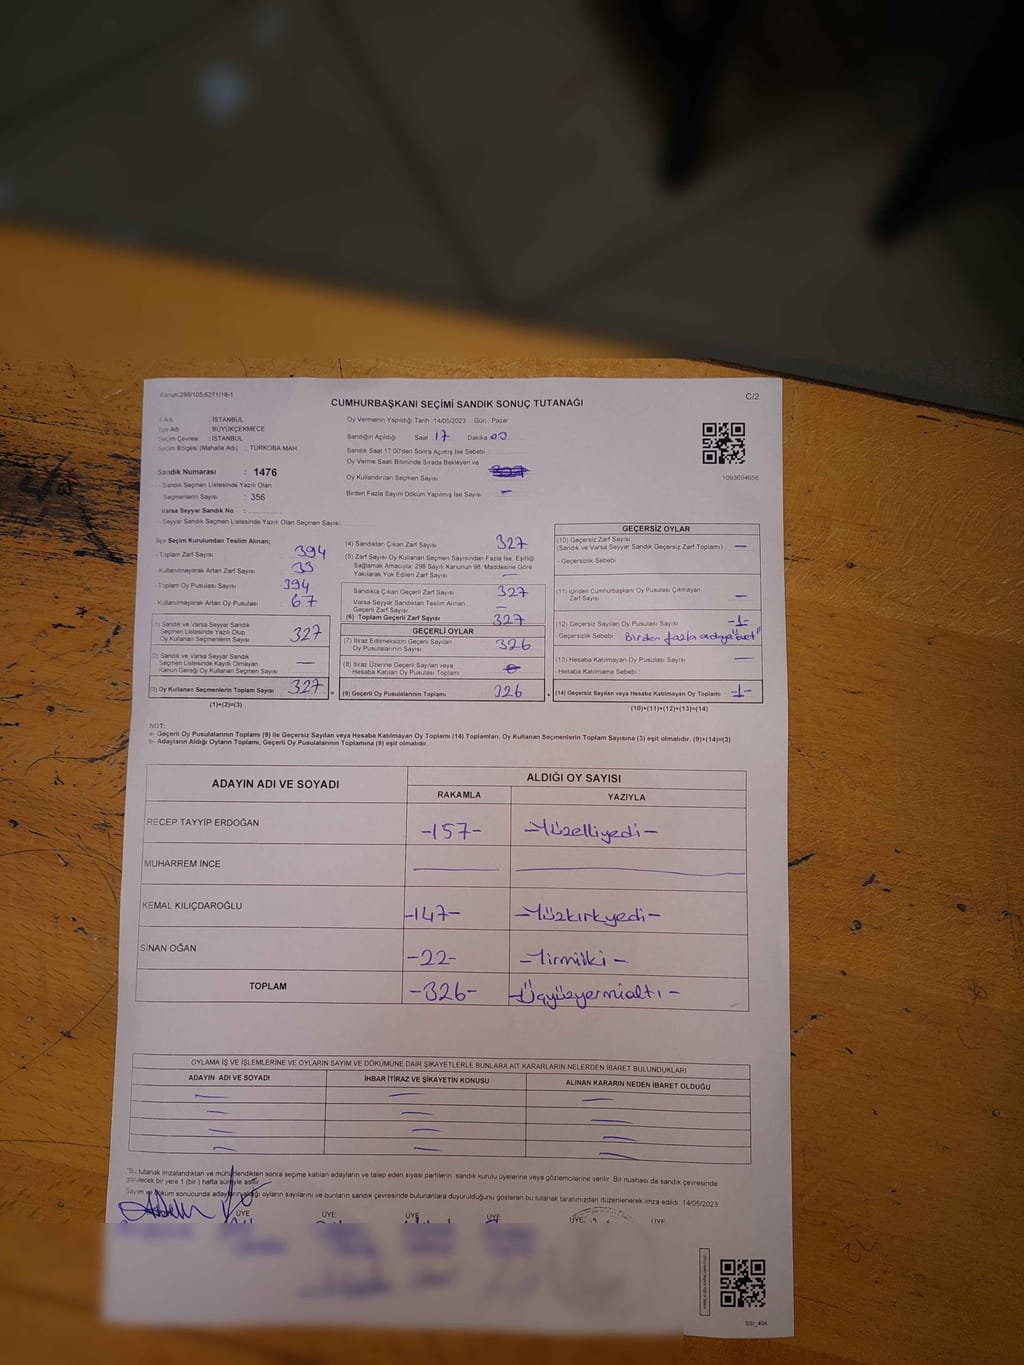 Kanun;298/105,6271/18-1
CUMHURBAŞKANI SEÇİMİ SANDIK SONUÇ TUTANAĞI
C/2
İl Adı : İSTANBUL
İlçe Adı : BÜYÜKÇEKMECE
Seçim Çevresi : İSTANBUL
Seçim Bölgesi (Mahalle Adı) : TÜRKOBA MAH
Sandık Numarası : 1476
- Sandık Seçmen Listesinde Yazılı Olan
Seçmenlerin Sayısı : 356
Varsa Seyyar Sandık No :
- Seyyar Sandık Seçmen Listesinde Yazılı Olan Seçmen Sayısı:
Oy Vermenin Yapıldığı Tarih : 14/05/2023 Gün : Pazar
Sandığın Açıldığı Saat : 17 Dakika 00
Sandık Saat 17:00'den Sonra Açılmış İse Sebebi
Oy Verme Saati Bitiminde Sırada Bekleyen ve
Oy Kullandırılan Seçmen Sayısı:
Birden Fazla Sayım Döküm Yapılmış İse Sayısı : -
1093694656
İlçe Seçim Kurulundan Teslim Alınan;
- Toplam Zarf Sayısı : 394
- Kullanılmayarak Artan Zarf Sayısı : 33
- Toplam Oy Pusulası Sayısı : 394
- Kullanılmayarak Artan Oy Pusulası : 67
(1) Sandık ve Varsa Seyyar Sandık
Seçmen Listesinde Yazılı Olup
Oy Kullanan Seçmenlerin Sayısı 327
(2) Sandık ve Varsa Seyyar Sandık
Seçmen Listesinde Kayıtlı Olmayan
Kanun Gereği Oy Kullanan Seçmen Sayısı —
(3) Oy Kullanan Seçmenlerin Toplam Sayısı 327
(1)+(2)=(3)
(4) Sandıktan Çıkan Zarf Sayısı 327
(5) Zarf Sayısı Oy Kullanan Seçmen Sayısından Fazla İse, Eşitliği
Sağlamak Amacıyla; 298 Sayılı Kanunun 98. Maddesine Göre
Yakılarak Yok Edilen Zarf Sayısı —
Sandıkta Çıkan Geçerli Zarf Sayısı 327
Varsa Seyyar Sandıktan Teslim Alınan
Geçerli Zarf Sayısı —
(6) Toplam Geçerli Zarf Sayısı 327
GEÇERLİ OYLAR
(7) İtiraz Edilmeksizin Geçerli Sayılan
Oy Pusulalarının Sayısı 326
(8) İtiraz Üzerine Geçerli Sayılan veya
Hesaba Katılan Oy Pusulası Toplamı
(9) Geçerli Oy Pusulalarının Toplamı 326
GEÇERSİZ OYLAR
(10) Geçersiz Zarf Sayısı
(Sandık ve Varsa Seyyar Sandık Geçersiz Zarf Toplamı) : —
- Geçersizlik Sebebi
(11) İçinden Cumhurbaşkanı Oy Pusulası Çıkmayan
Zarf Sayısı —
(12) Geçersiz Sayılan Oy Pusulası Sayısı -1-
- Geçersizlik Sebebi Birden fazla adaya "evet"
(13) Hesaba Katılmayan Oy Pusulası Sayısı —
- Hesaba Katılmama Sebebi
(14) Geçersiz Sayılan veya Hesaba Katılmayan Oy Toplamı -1-
(10)+(11)+(12)+(13)=(14)
NOT:
a- Geçerli Oy Pusulalarının Toplamı (9) ile Geçersiz Sayılan veya Hesaba Katılmayan Oy Toplamı (14) Toplamları, Oy Kullanan Seçmenlerin Toplam Sayısına (3) eşit olmalıdır, (9)+(14)=(3)
b- Adayların Aldığı Oyların Toplamı, Geçerli Oy Pusulalarının Toplamına (9) eşit olmalıdır.
ADAYIN ADI VE SOYADI
ALDIĞI OY SAYISI
RAKAMLA YAZIYLA
RECEP TAYYİP ERDOĞAN -157- -Yüzelliyedi-
MUHARREM İNCE
KEMAL KILIÇDAROĞLU -147- -Yüzkırkyedi-
SİNAN OĞAN -22- -Yirmiiki-
TOPLAM -326- -Üçyüzyermialtı-
OYLAMA İŞ VE İŞLEMLERİNE VE OYLARIN SAYIM VE DÖKÜMÜNE DAİR ŞİKAYETLERLE BUNLARA AİT KARARLARIN NELERDEN İBARET BULUNDUKLARI
ADAYIN ADI VE SOYADI İHBAR İTİRAZ VE ŞİKAYETİN KONUSU ALINAN KARARIN NEDEN İBARET OLDUĞU
"Bu tutanak imzalandıktan ve mühürlendikten sonra seçime katılan adayların ve talep eden siyasi partilerin sandık kurulu üyelerine veya gözlemcilerine verilir. Bir nüshası da sandık çevresinde
görülecek bir yere 1 (bir ) hafta süreyle asılır.
Sayım ve döküm sonucunda adayların aldığı oyların sayılarını ve bunların sandık çevresinde bulunanlara duyurulduğunu gösteren bu tutanak tarafımızdan düzenlenerek imza edildi. 14/05/2023
ÜYE ÜYE ÜYE ÜYE ÜYE ÜYE
SSI_404